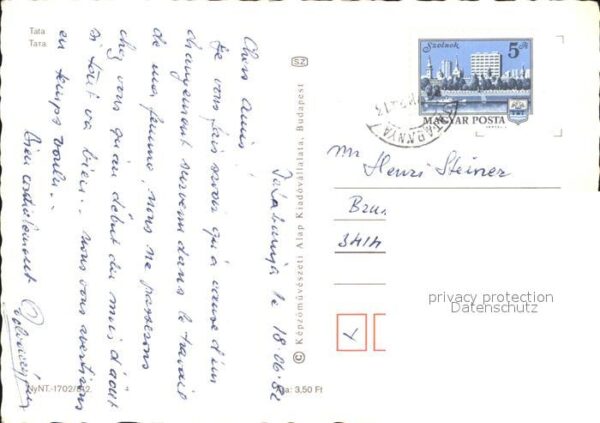 Tata
Тата
Tatabanya le 18.06.82
Chers amis!
Je vous fais savoir qu'à cause d'un
changement survenu dans le travail
de ma femme, nous ne passerons
chez vous qu'au début du mois d'août
si tout va bien.. nous vous avertirons
en temps voulu..
Bien cordialement
NyNT.-1702/812.
Ára: 3,50 Ft
© Képzőművészeti Alap Kiadóvállalata, Budapest
SZ
Szolnok
5 Ft
MAGYAR POSTA
TATABÁNYA
Mr Henri Steiner
3414
privacy protection
Datenschutz